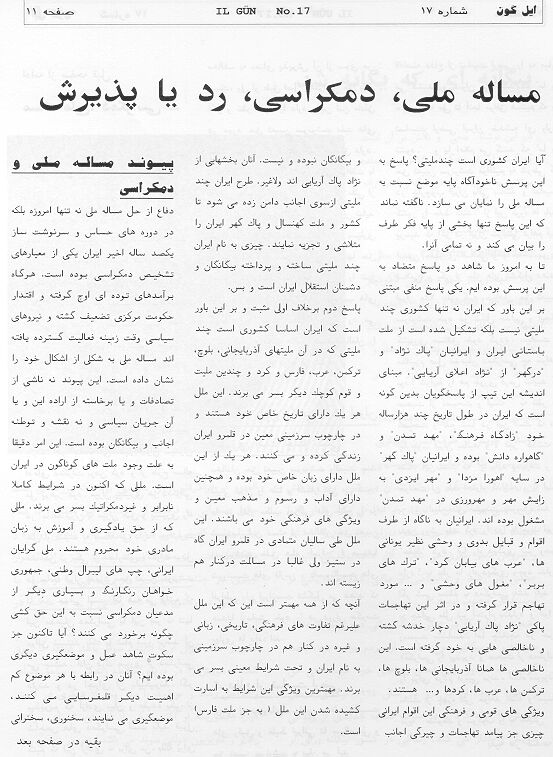 ایل گون
شماره ۱۷
IL GÜN No.17
صفحه ۱۱
مساله ملی، دمکراسی، رد یا پذیرش
آیا ایران کشوری است چندملیتی؟ پاسخ به
این پرسش ناخودآگاه پایه موضع نسبت به
مساله ملی را نمایان می سازد. ناگفته نماند
که این پاسخ تنها بخشی از پایه فکر طرف
را بیان می کند و نه تمامی آنرا.
تا به امروز ما شاهد دو پاسخ متضاد به
این پرسش بوده ایم. یکی پاسخ منفی مبتنی
بر این باور که ایران نه تنها کشوری چند
ملیتی نیست بلکه تشکیل شده است از ملت
باستانی ایران و ایرانیان "پاك نژاد" و
"درگهر" از "نژاد اعلای آریایی". مبنای
اندیشه این تیپ از پاسخگویان بدین گونه
است که ایران در طول تاریخ چند هزارساله
خود "زادگاه فرهنگ"، "مهد تمدن" و
"گاهواره دانش" بوده و ایرانیان "پاك گهر"
در سایه "اهورا مزدا" و "مهر ایزدی" به
زایش مهر و مهرورزی در "مهد تمدن"
مشغول بوده اند. ایرانیان به ناگاه از طرف
اقوام و قبایل بدوی و وحشی نظیر یونانی
ها، "عرب های بیابان گرد"، "ترك های
بربر"، "مغول های وحشی" و ... مورد
تهاجم قرار گرفته و در اثر این تهاجمات
پاکی "نژاد پاك آریایی" دچار خدشه گشته
و ناخالصی هایی به خود گرفته است. این
ناخالصی ها همانا آذربایجانی ها، بلوچ ها،
ترکمن ها، عرب ها، کردها و... هستند.
ویژگی های قومی و فرهنگی این اقوام ایرانی
چیزی جز پیامد تهاجمات و چیرگی اجانب
و بیگانگان نبوده و نیست. آنان بخشهایی از
نژاد پاك آریایی اند ولاغیر. طرح ایران چند
ملیتی ازسوی اجانب دامن زده می شود تا
کشور و ملت کهنسال و پاك گهر ایران را
متلاشی و تجزیه نمایند. چیزی به نام ایران
چند ملیتی ساخته و پرداخته بیگانگان و
دشمنان استقلال ایران است و بس.
پاسخ دوم برخلاف اولی مثبت و بر این باور
است که ایران اساسا کشوری است چند
ملیتی که در آن ملیتهای آذربایجانی، بلوچ،
ترکمن، عرب، فارس و کرد و چندین ملیت
و قوم کوچك دیگر بسر می برند. این ملل
هر یك دارای تاریخ خاص خود هستند و
در چارچوب سرزمینی معین در قلمرو ایران
زندگی کرده و می کنند. هر یك از این
ملل دارای زبان خاص خود بوده و همچنین
دارای آداب و رسوم و مذهب معین و
ویژگی های فرهنگی خود می باشند. این
ملل طی سالیان متمادی در قلمرو ایران گاه
در ستیز ولی غالبا در مسالمت درکنار هم
زیسته اند.
آنچه که از همه مهمتر است این که این ملل
علیرغم تفاوت های فرهنگی، تاریخی، زبانی
و غیره در کنار هم در چارچوب سرزمینی
به نام ایران و تحت شرایط معینی بسر می
برند. مهمترین ویژگی این شرایط به اسارت
کشیده شدن این ملل ( به جز ملت فارس)
است.
پیوند مساله ملی و
دمکراسی
دفاع از حل مساله ملی نه تنها امروزه بلکه
در دوره های حساس و سرنوشت ساز
یکصد ساله اخیر ایران یکی از معیارهای
تشخیص دمکراسی بوده است. هرگاه
برآمدهای توده ای اوج گرفته و اقتدار
حکومت مرکزی تضعیف گشته و نیروهای
سیاسی وقت زمینه فعالیت گسترده یافته
اند مساله ملی به شکلی از اشکال خود را
نشان داده است. این پیوند نه ناشی از
تصادفات و یا برخاسته از اراده این و یا
آن جریان سیاسی و نه نقشه و توطئه
اجانب و بیگانگان بوده است. این امر دقیقا
به علت وجود ملت های گوناگون در ایران
است. مللی که اکنون در شرایط کاملا
نابرابر و غیردمکراتیك بسر می برند. مللی
که از حق یادگیری و آموزش به زبان
مادری خود محروم هستند. ملی گرایان
ایرانی، چپ های لیبرال وطنی، جمهوری
خواهان رنگارنگ و بسیاری دیگر از
مدعیان دمکراسی نسبت به این حق کشی
چگونه برخورد می کنند؟ آیا تاکنون جز
سکوت شاهد عمل و موضعگیری دیگری
بوده ایم؟ آنان در رابطه با هر موضوع کم
اهمیت دیگر قلمفرسایی می کنند،
موضعگیری می نمایند، سخنوری، سخنرانی
بقیه در صفحه بعد